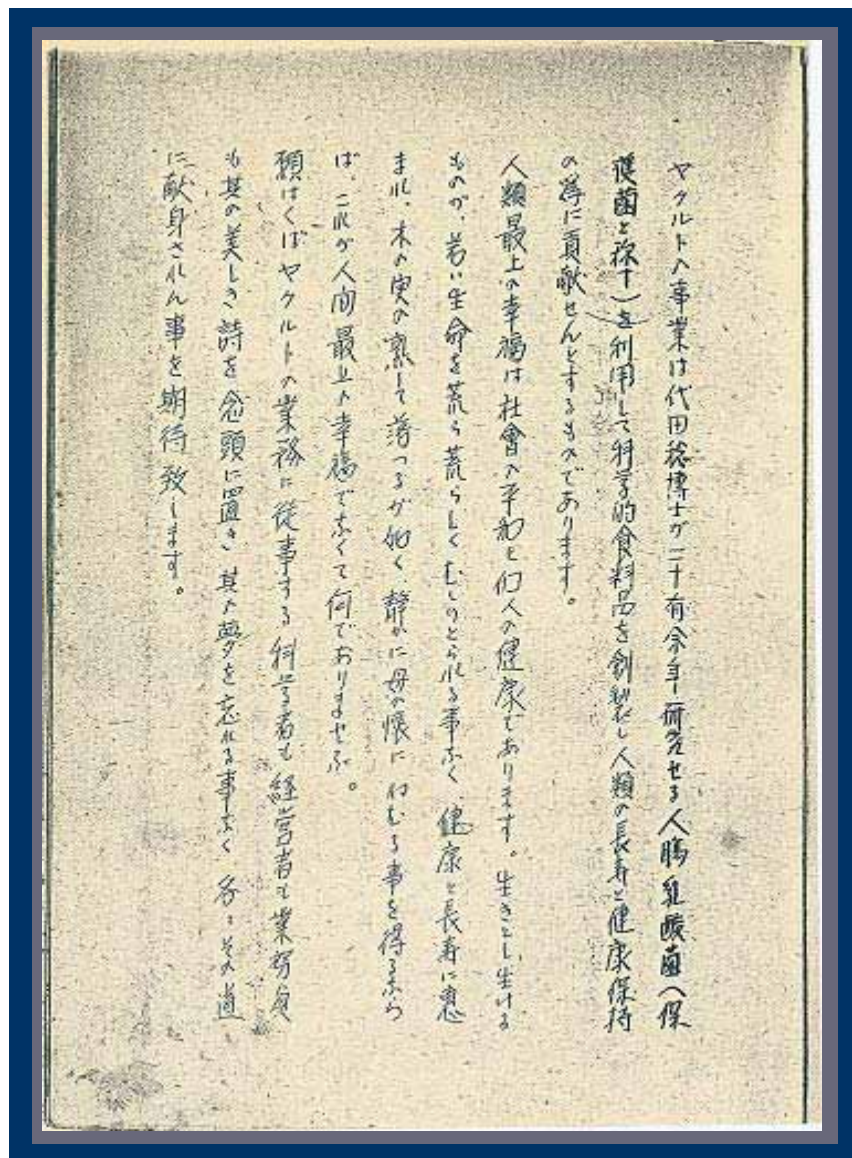 ヤクルトの事業は代田稔博士が二十有余年研究せる人腸乳酸菌（保
護菌と稱す）を利用して科学的食料品を創製し人類の長寿と健康保持
の為に貢献せんとするものであります。
人類最上の幸福は社會の平和と個人の健康であります。生きとし生ける
ものが、若い生命を荒ら荒らしくむしりとられる事なく、健康と長寿に惠
まれ、木の実の熟して落つるが如く、静かに母の懐にねむる事を得るなら
ば、これが人间最上の幸福でなくて何でありませふ。
願はくばヤクルトの業務に従事する科学者も経営者も業務員
も其の美しき詩を念頭に置き、其の夢を忘れる事なく各〻その道
に献身されん事を期待致します。